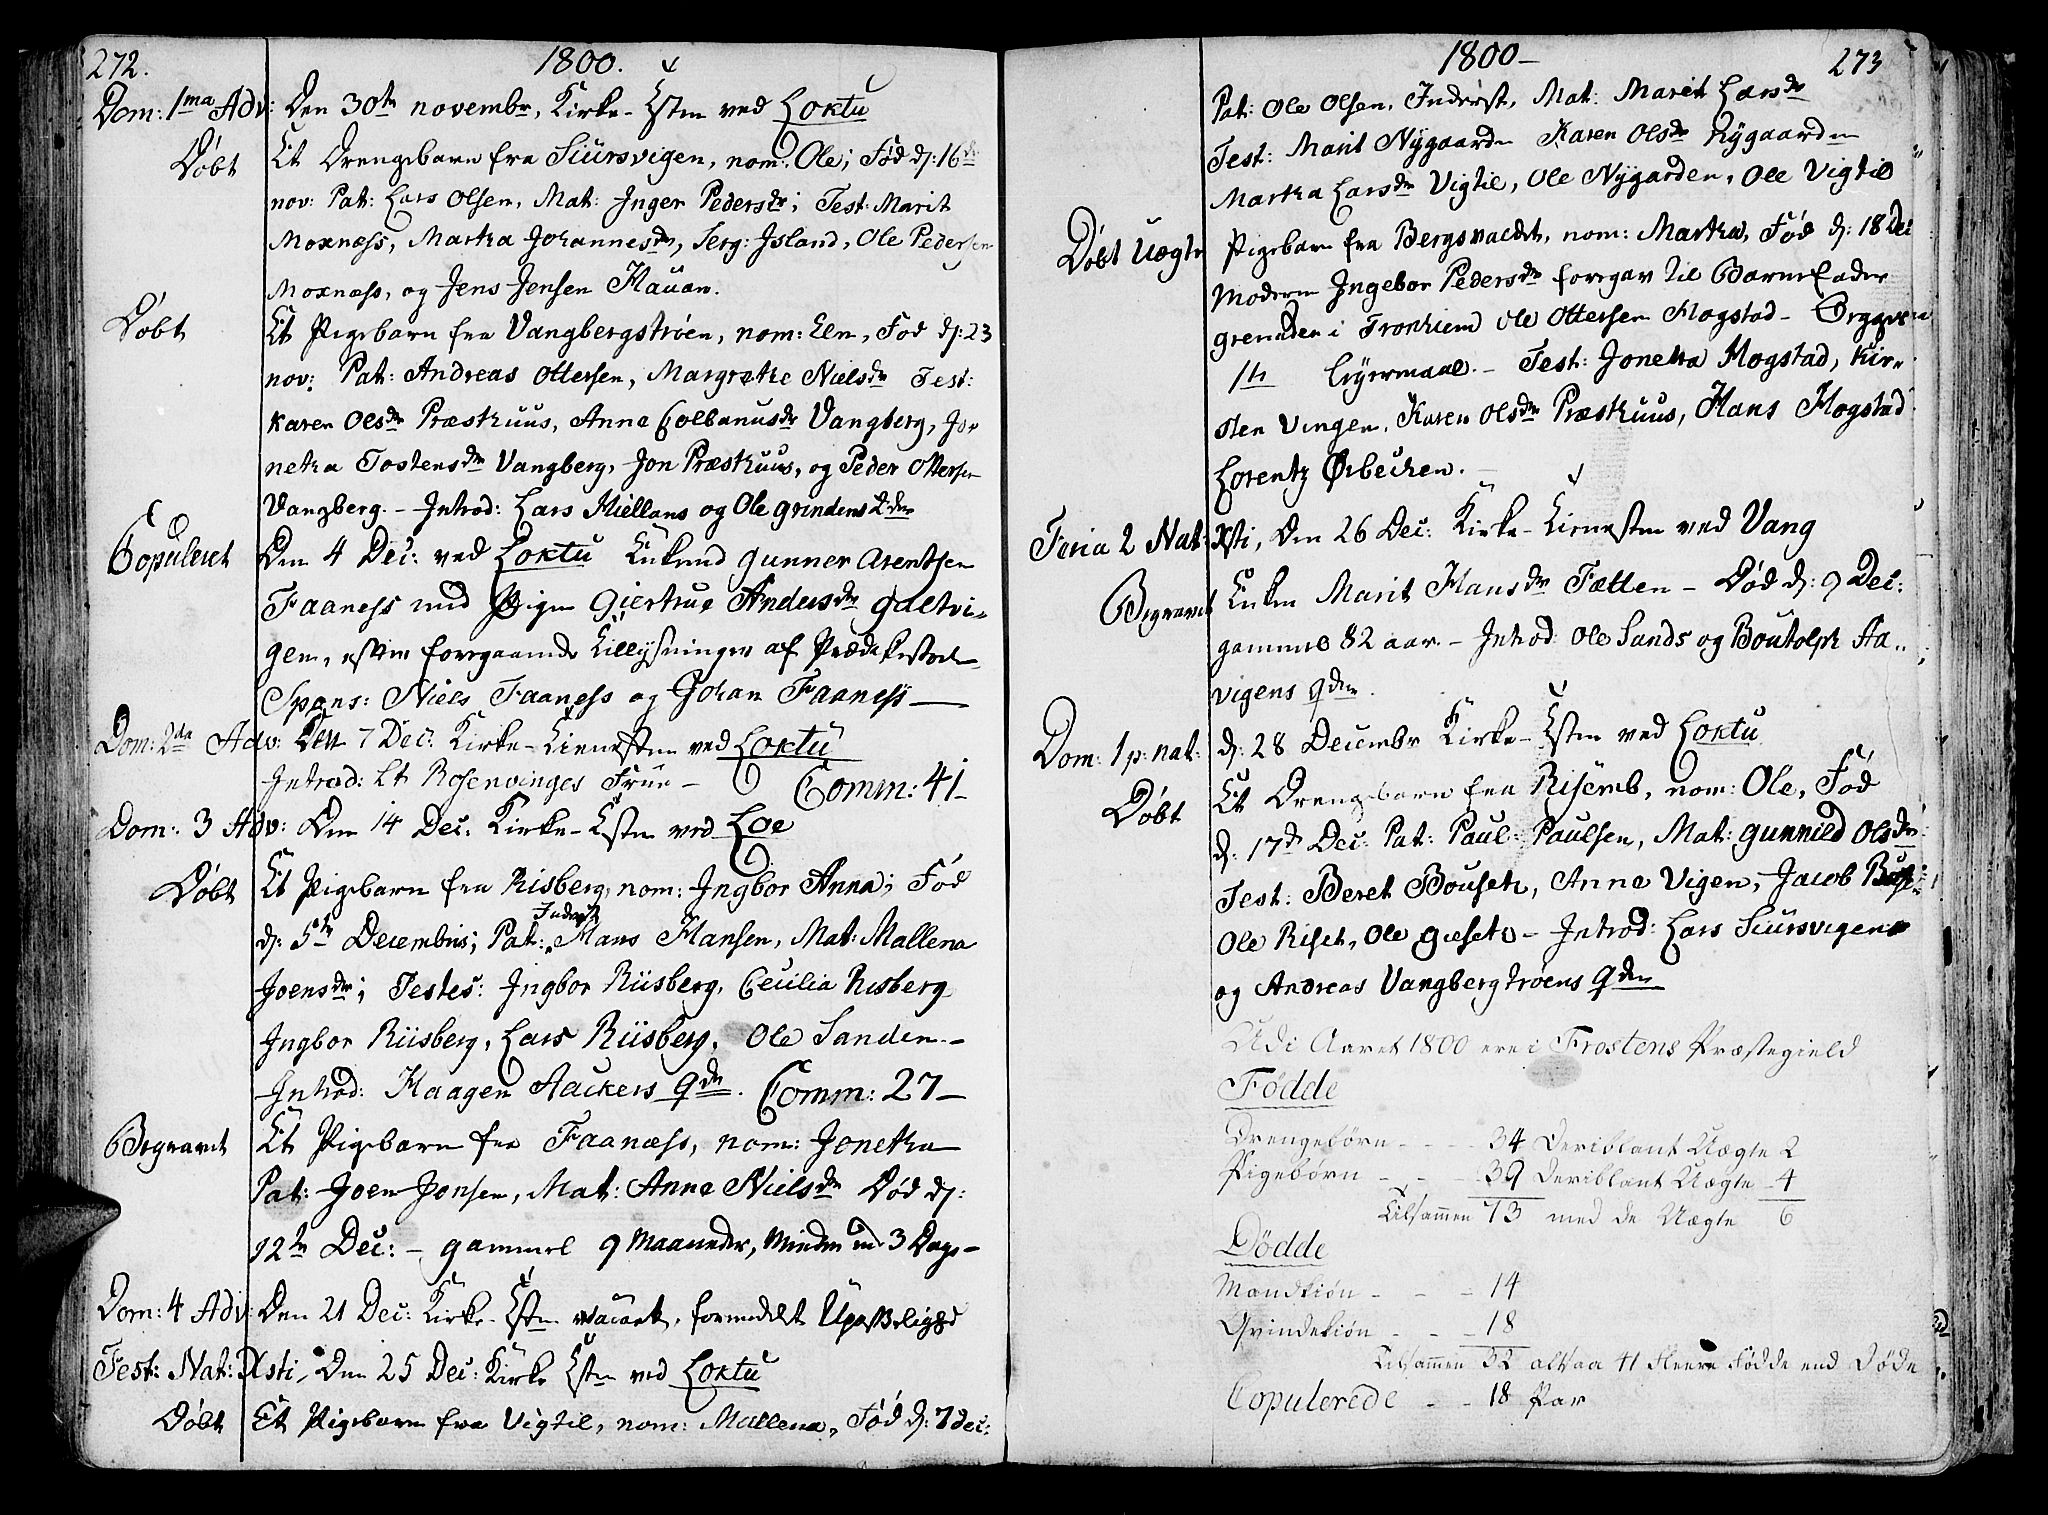 272.
1800.
Dom: 1ma Adv: Den 30te novembr, Kirke-Tjsten ved Loktu
Døbt Et Drengebarn fra Siursvigen, nom: Ole; Fød d: 16de
nov: Pat: Lars Olsen, Mat: Inger Pedersdr; Test: Marit
Moxness, Martha Johannesdr, Serg: Island, Ole Pedersen
Moxness, og Jens Jensen Hauan.
Døbt Et Pigebarn fra Vangbergstrøen, nom: Elen, Fød d: 23
nov: Pat: Andreas Ottersen, Margrethe Nielsdr Test:
Karen Olsdr Præsthuus, Anne Colbanusdr Vangberg, Jo-
netha Tostensdr Vangberg, Jon Præsthuus, og Peder Ottersen
Vangberg. - Introd: Lars Hiellans og Ole Grindens Qder
Copuleret Den 4 Dec: ved Loktu Enkemd Gunner Arentsen
Faaness med Pigen Giertrue Andersdr Galtvi-
gen, efter foregaaende Tillysninger af Prædikestolen
Spons: Niels Faaness og Johan Faaness
Dom: 2da Adv: Den 7 Dec: Kirke-Tienesten ved Loktu
Introd: Lt Rosenvinges Frue - Comm: 41-
Dom: 3 Adv: Den 14 Dec: Kirke-Tjsten ved Loe
Døbt Et Pigebarn fra Risberg, nom: Ingbor Anna; Fød
d: 5te Decembris; Pat: Inderøst Hans Hansen, Mat: Mallena
Joensdr; Testes: Ingbor Riisberg, Cecilia Risberg
Ingbor Riisberg, Lars Riisberg, Ole Sanden.-
Introd: Haagen Aackers Qde. Comm: 27-
Begravet Et Pigebarn fra Faanæss, nom: Jonetha
Pat: Joen Jonsen, Mat: Anne Nielsdr Død d:
12te Dec: - gammel 9 Maaneder, Mindre end 3 Dage-
Dom: 4 Adv: Den 21 Dec: Kirke-Tjsten vacark, formedelst Upasselighed
Fest: Nat: Xsti, Den 25 Dec: Kirke Tjsten ved Loktu
Døbt Et Pigebarn fra Vigtil, nom: Mallena, Fød d: 7 dec:
1800-
273
Pat: Ole Olsen, Inderøst, Mat: Marit Larsdr
Test: Marit Nygaarden Karen Olsdr Nygaarden
Martha Larsdr Vigtil, Ole Nygarden, Ole Vigtil
Døbt Uægte Pigebarn fra Bergsvaldet, nom: Martha, Fød d: 18 Dec
Moderen Ingebor Pedersdr foregav til Barnefader
grenader i Tronhiem Ole Ottersen Mogstad -
1te Leyermaal. - Test: Jonetha Mogstad, Kir-
sten Vingen, Karen Olsdr Præsthuus, Hans Mogstad
Lorentz Ørbechen.
Feria 2 Nat: Xsti, Den 26 Dec: Kirke-Tienesten ved Vang
Begravet Enken Marit Hansdr Fætten - Død d: 9 Dec:
gammel 82 aar. - Introd: Ole Sands og Boutolph Aa-
vigens Qder.
Dom: 1 p: nat: d: 28 Decembr Kirke-Tjsten ved Loktu
Døbt Et Drengebarn fra Risemb, nom: Ole, Fød
d: 17de Dec: Pat: Paul Paulsen, Mat: Gunnild Olsdr:
Test: Beret Bouseth, Anne Vigen, Jacob
Ole Riset, Ole Gieseth - Introd: Lars Siursvigens
og Andreas Vangbergtrøens Qder
Udi Aaret 1800 ere i Frostens Præstegield
Fødde
Drengebørn - - - 34 Deriblant Uægte 2
Pigebørn - - - 39 Deriblant Uægte 4
Tilsammen 73 med de Uægte 6
Dødde
Mandkiøn - - - 14
Qvindekiøn - - - 18
Tilsammen 32 altsaa 41 fleere Fødde end Døde
Copulerede - - 18 Par